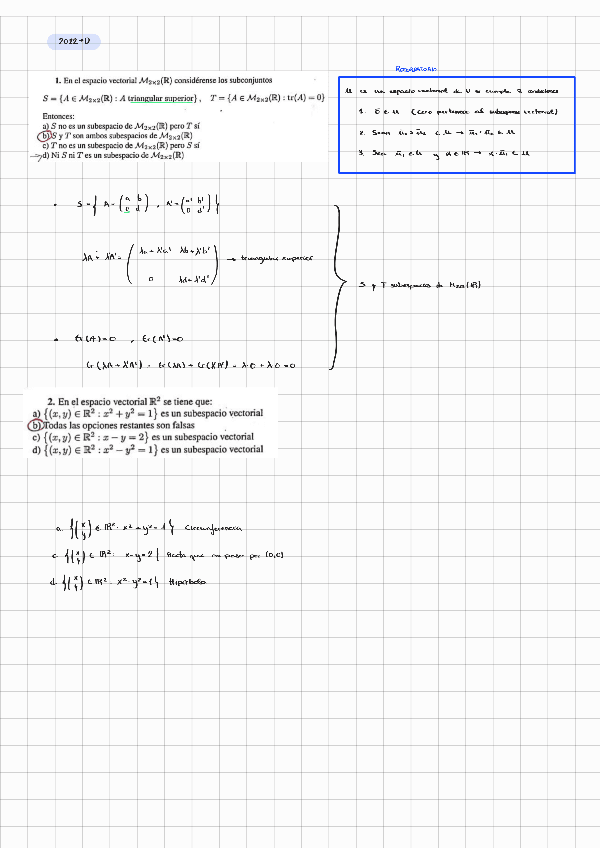 2022-D
1. En el espacio vectorial M₂ₓ₂(ℝ) considérense los subconjuntos
S = {A ∈ M₂ₓ₂(ℝ) : A triangular superior}, T = {A ∈ M₂ₓ₂(ℝ) : tr(A) = 0}
Entonces:
a) S no es subespacio de M₂ₓ₂(ℝ) pero T sí
b) S y T son ambos subespacios de M₂ₓ₂(ℝ)
c) T no es subespacio de M₂ₓ₂(ℝ) pero S sí
d) Ni S ni T es un subespacio de M₂ₓ₂(ℝ)
RECORDATORIO
U es un espacio vectorial de V si cumple 3 condiciones
1. 0 ∈ U (Cero pertenece al subespacio vectorial)
2. Sean ū₁, ū₂ ∈ U → ū₁ + ū₂ ∈ U
3. Sea ū₁ ∈ U y α ∈ ℝ → α·ū₁ ∈ U
S = { A = (a b / 0 d), A' = (a' b' / 0 d') }
λA + λ'A' = (λa + λ'a' λb + λ'b' / 0 λd + λ'd') → triangular superior
S y T subespacios de M₂ₓ₂(ℝ)
tr(A) = 0, tr(A') = 0
tr(λA + λ'A') = tr(λA) + tr(λ'A') = λ·0 + λ·0 = 0
2. En el espacio vectorial ℝ² se tiene que:
a) {(x, y) ∈ ℝ² : x² + y² = 1} es un subespacio vectorial
b) Todas las opciones restantes son falsas
c) {(x, y) ∈ ℝ² : x − y = 2} es un subespacio vectorial
d) {(x, y) ∈ ℝ² : x² − y² = 1} es un subespacio vectorial
a. {(x / y) ∈ ℝ² : x² + y² = 1} Circunferencia
c. {(x / y) ∈ ℝ² : x - y = 2} Recta que no pasa por (0,0)
d. {(x / y) ∈ ℝ² : x² - y² = 1} Hipérbola